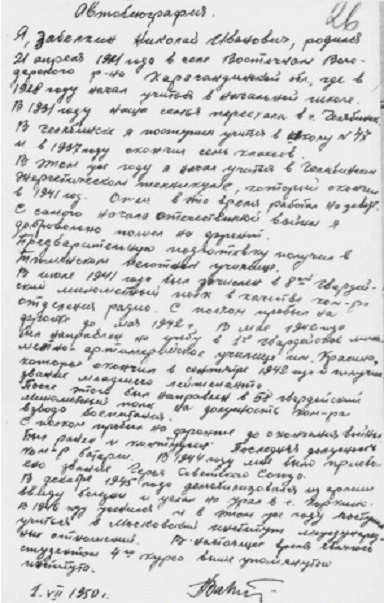 26
Автобиография.
Я, Забелкин Николай Иванович, родился
21 апреля 1921 года в селе Восточном
р-на Карагандинской обл, где в
1928 году начал учиться в начальной школе.
В 1931 году наша семья переехала в г. Челябинск.
В Челябинске я поступил учиться в школу N
и в 1937 году окончил семь классов.
В этом же году я начал учиться в Челябинском
Энергетическом техникуме, который окончил
в 1941 год. Отец в это время работал на
С самого начала отечественной войны я
добровольно пошел на фронт.
Предварительную подготовку получил в
училище.
В июле 1941 года был зачислен в 8ой гвардей-
ский минометный полк в качестве ком-ра
отделения радио. С полком пробыл на
фронте до мая 1942 г. В мае 1942 года
был направлен на учебу в 1ое гвардейское мино-
метно артиллерийское училище им. Красина,
которое окончил в сентябре 1942 года и получил
звание младшего лейтенанта.
После этого был направлен в гвардейский
минометный полк на должность ком-ра
взвода
С полком пробыл на фронте до окончания войны
Был ранен и контужен. Последняя должность
ком-р батареи. В 1944 году мне было присво-
ено звание Героя Советского Союза.
В декабре 1945 года демобилизовался из армии
ввиду болезни и уехал на Урал в г.
В 1946 году и в этом же году поступил
учиться в Московский институт международ-
ных отношений. В настоящее время являюсь
студентом 4го курса выше упомянутого
института.
1. VII 1950 г.